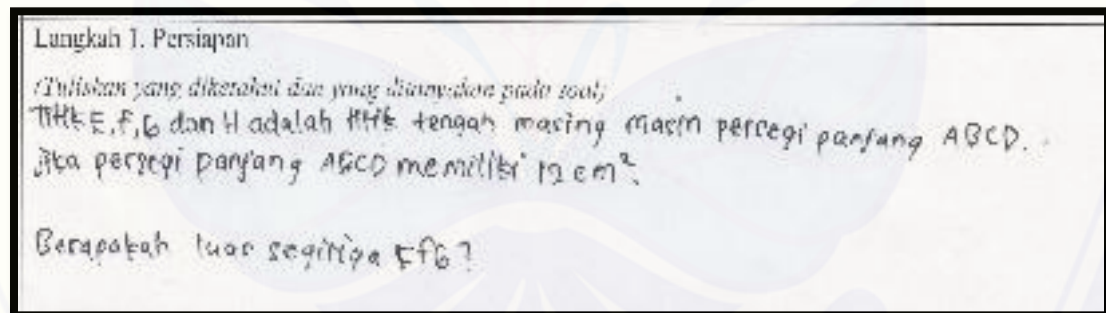 Langkah 1. Persiapan
(Tuliskan yang diketahui dan yang ditanyakan pada soal)
Titik E, F, G dan H adalah titik tengah masing masin persegi panjang ABCD.
Jika persegi panjang ABCD memiliki 12 cm².
Berapakah luas segitiga EFG?